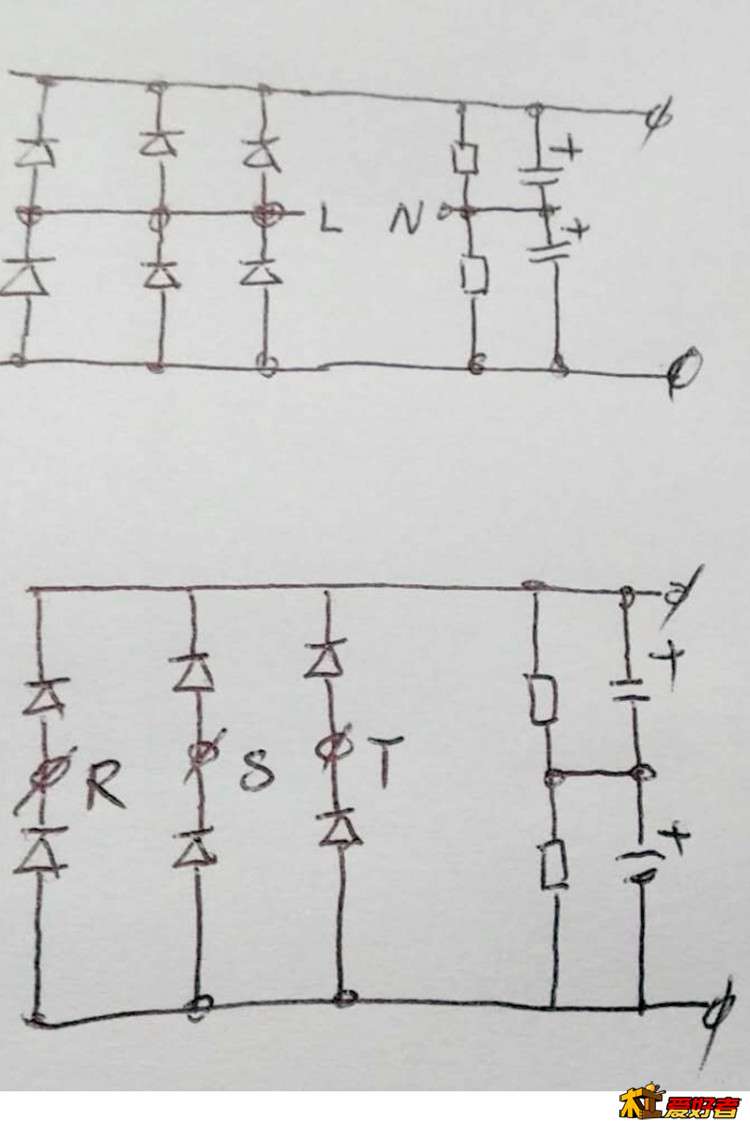 +
L N
+
+
R S T
+
木工爱好者